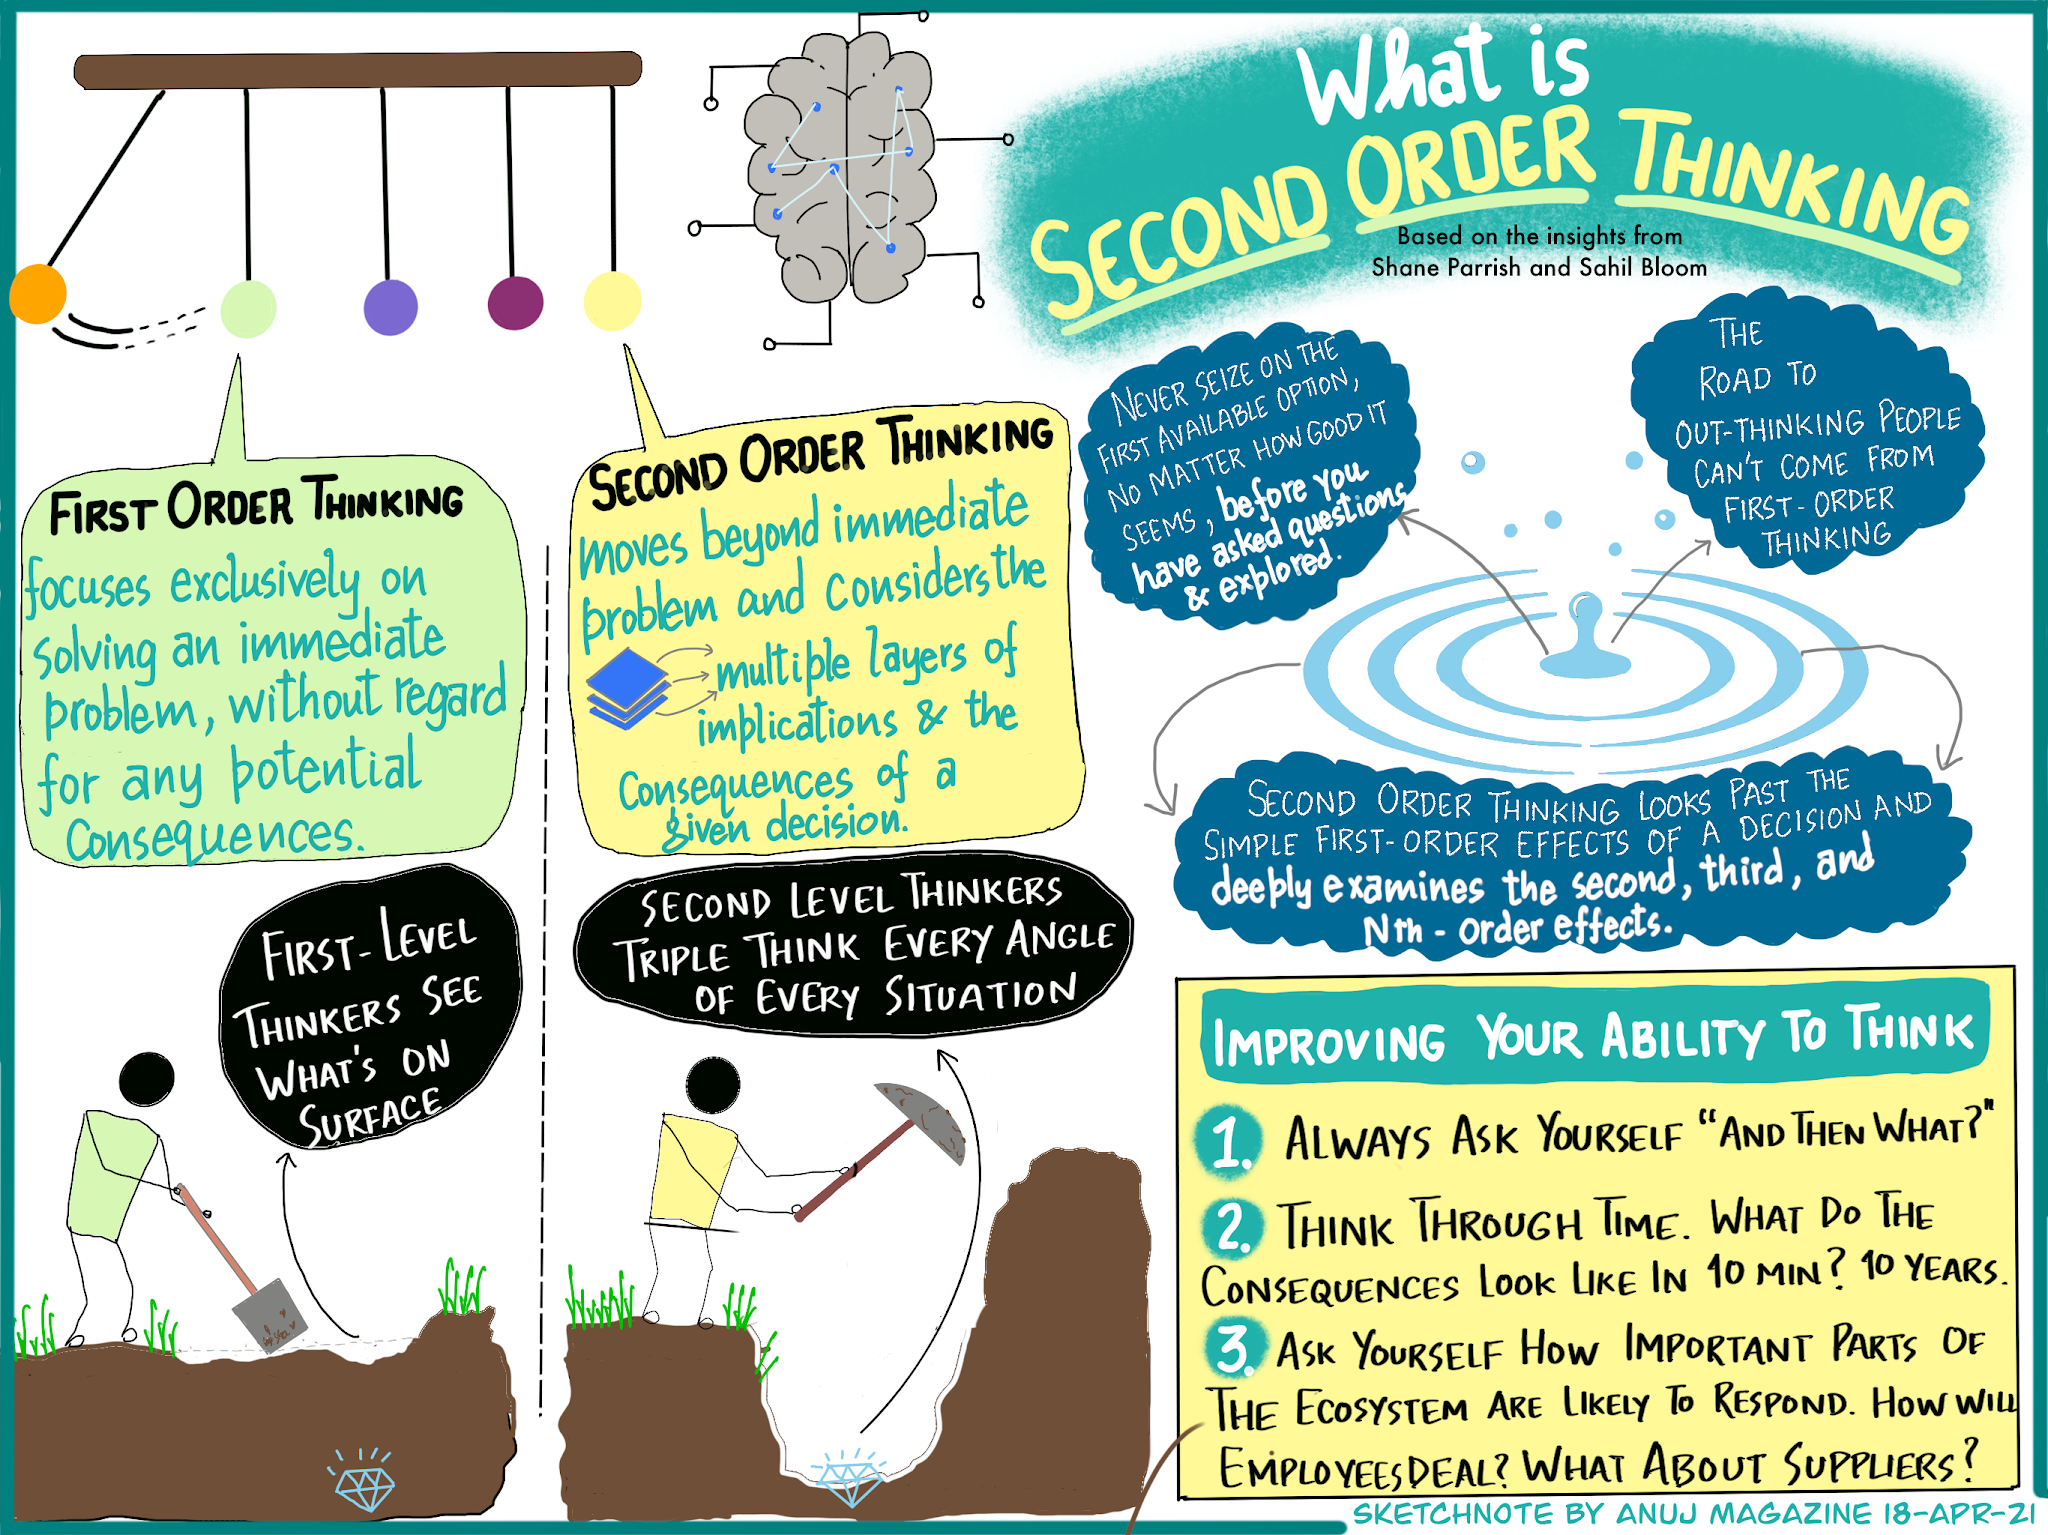 What is
SECOND ORDER THINKING
Based on the insights from
Shane Parrish and Sahil Bloom
FIRST ORDER THINKING
focuses exclusively on
solving an immediate
problem, without regard
for any potential
Consequences.
SECOND ORDER THINKING
moves beyond immediate
problem and considers the
multiple layers of
implications & the
Consequences of a
given decision.
NEVER SEIZE ON THE
FIRST AVAILABLE OPTION,
NO MATTER HOW GOOD IT
SEEMS, before you
have asked questions
& explored.
THE
ROAD TO
OUT-THINKING PEOPLE
CAN'T COME FROM
FIRST-ORDER
THINKING
SECOND ORDER THINKING LOOKS PAST THE
SIMPLE FIRST-ORDER EFFECTS OF A DECISION AND
deeply examines the second, third, and
Nth - Order effects.
FIRST-LEVEL
THINKERS SEE
WHAT'S ON
SURFACE
SECOND LEVEL THINKERS
TRIPLE THINK EVERY ANGLE
OF EVERY SITUATION
IMPROVING YOUR ABILITY TO THINK
1. ALWAYS ASK YOURSELF "AND THEN WHAT?"
2. THINK THROUGH TIME. WHAT DO THE
CONSEQUENCES LOOK LIKE IN 10 MIN? 10 YEARS.
3. ASK YOURSELF HOW IMPORTANT PARTS OF
THE ECOSYSTEM ARE LIKELY TO RESPOND. HOW WILL
EMPLOYEES DEAL? WHAT ABOUT SUPPLIERS?
SKETCHNOTE BY ANUJ MAGAZINE 18-APR-21